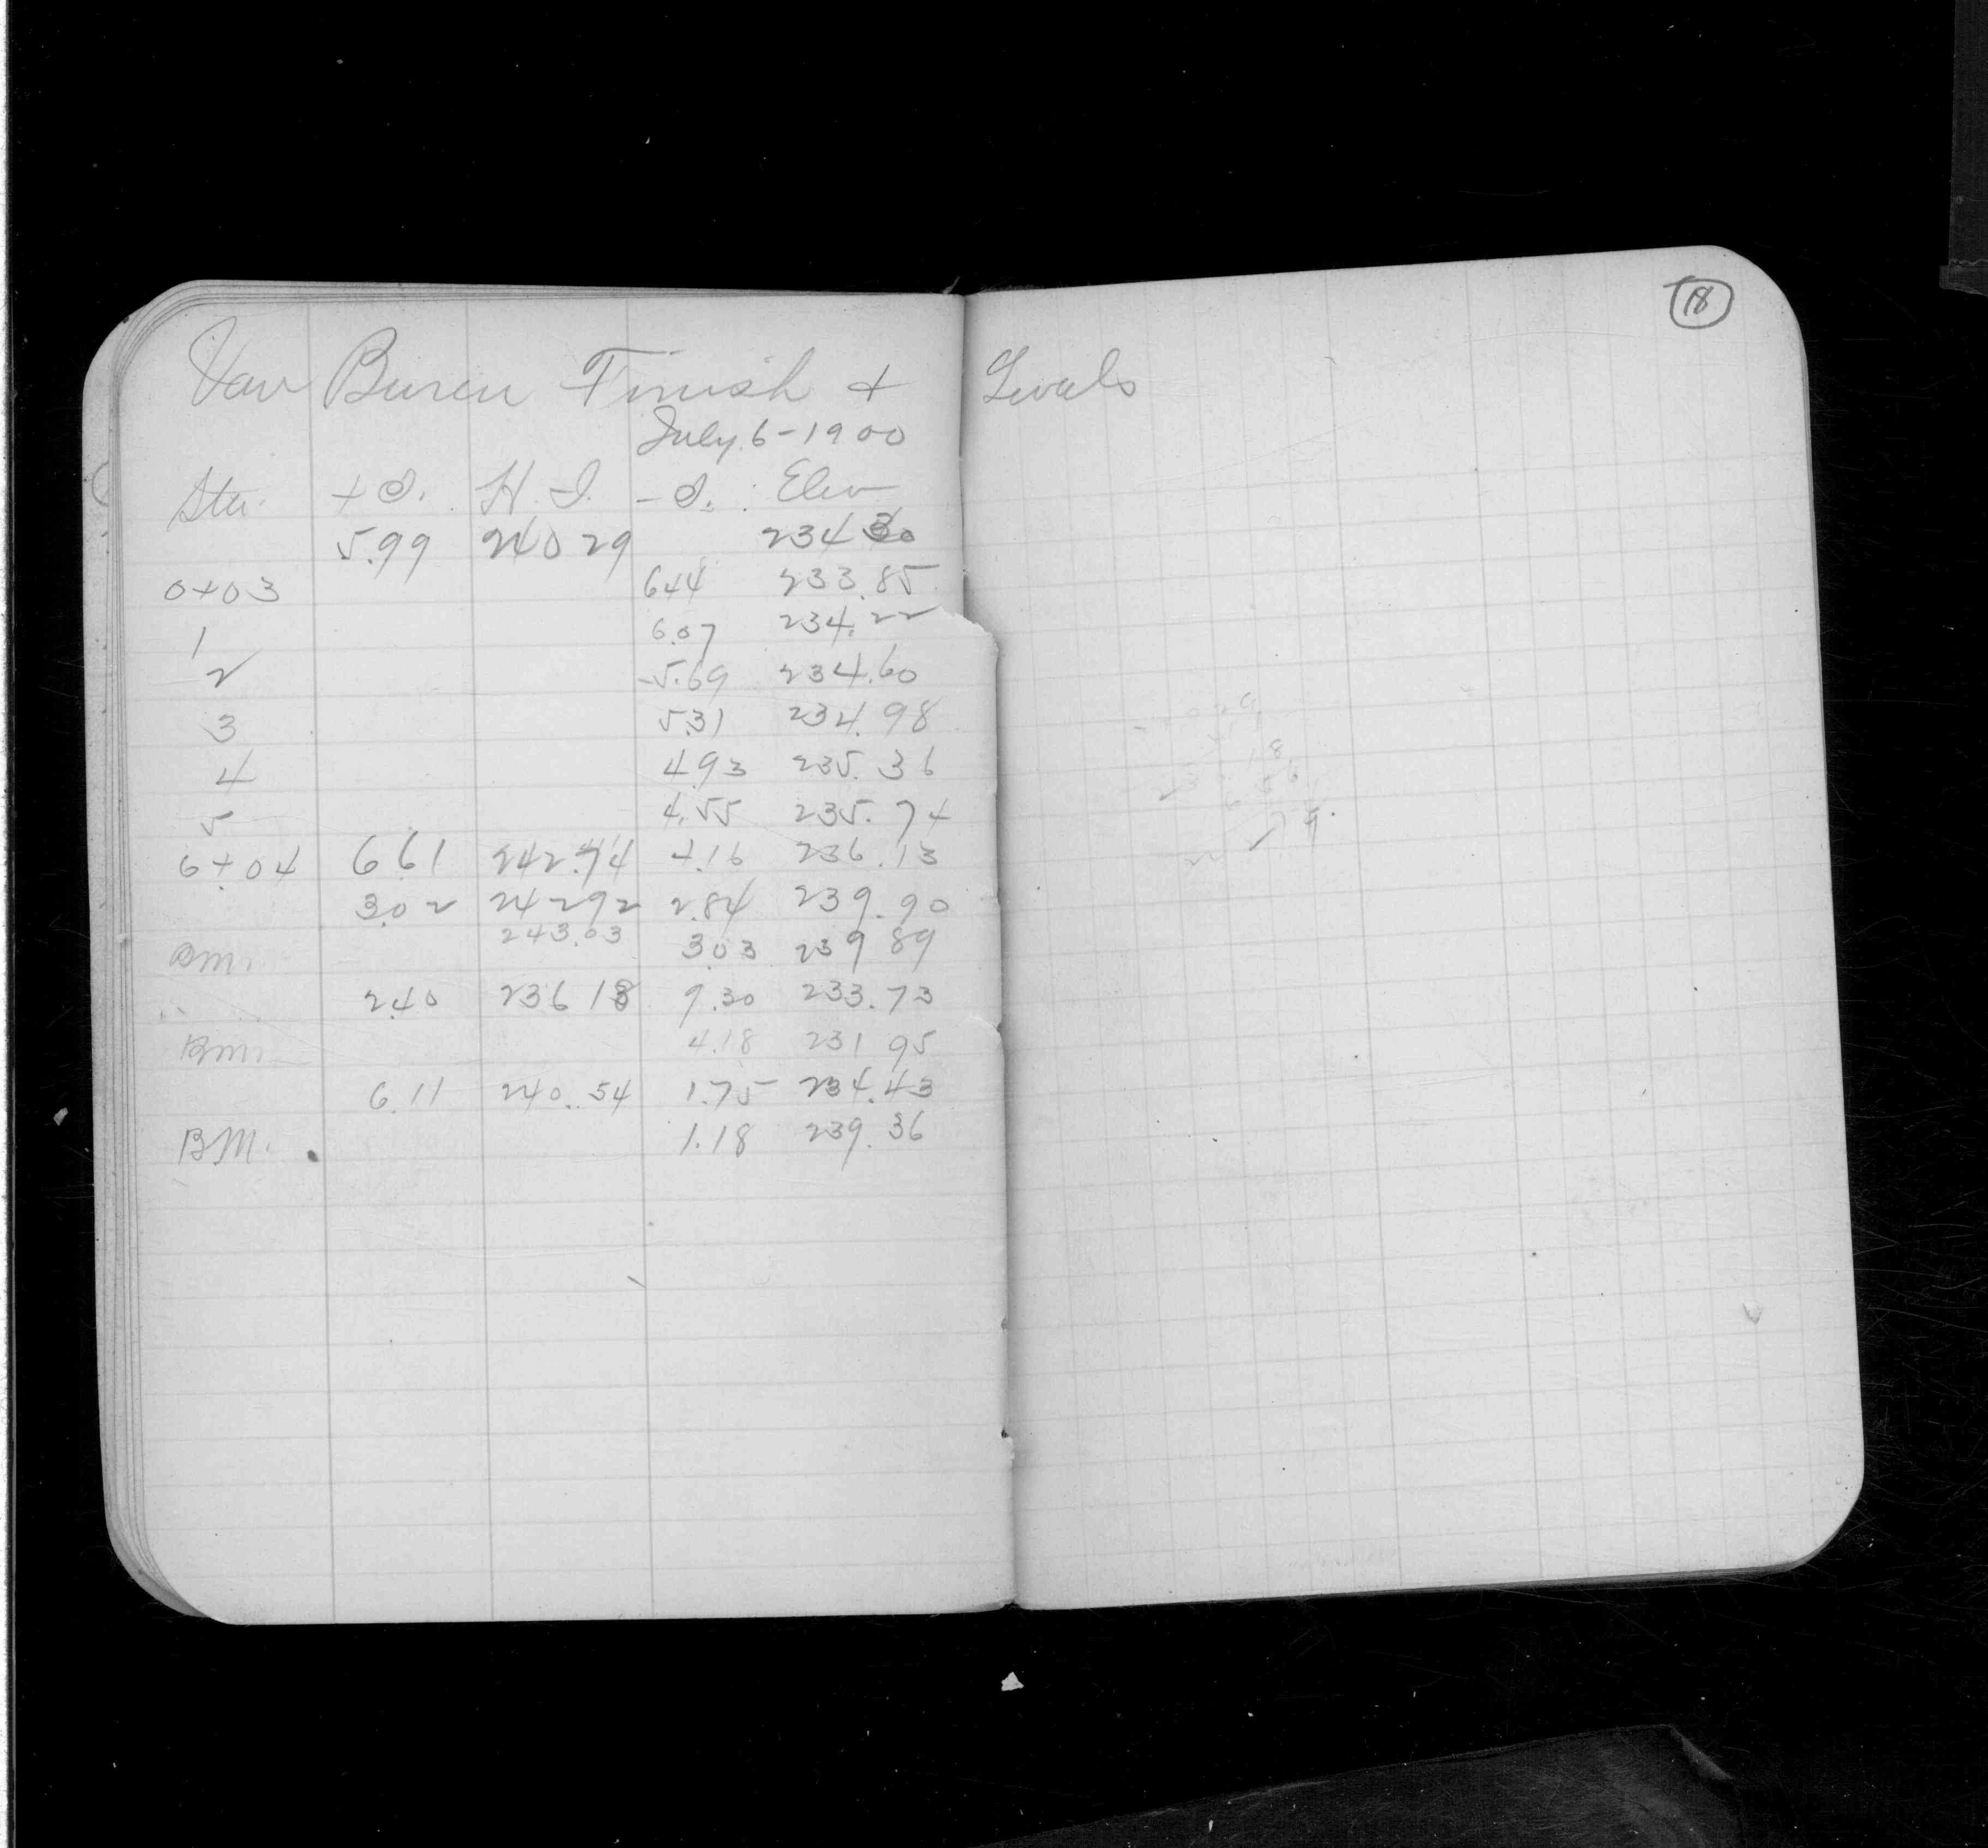 18
Van Buren Finish + Levels
July 6-1900
Sta. + S. H. I. - S. Elev
5.99 240 29 234 30
0+03 644 233.85
1 6.07 234.22
2 5.69 234.60
3 5.31 234.98
4 4.93 235.36
5 4.55 235.74
6+04 6 61 242.74 4.16 236.13
3.02 242 92 2.84 239.90
243.03
BM. 3.03 239 89
2.40 236 13 9.30 233.73
BM. 4.18 231 95
6.11 240.54 1.75 234.43
BM. 1.18 239.36